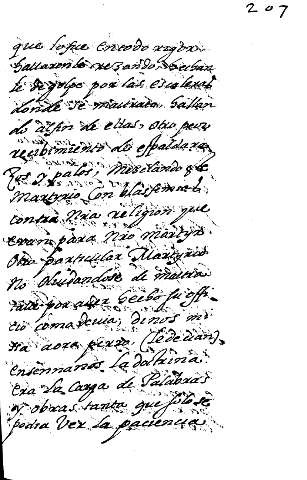 207
que lo fue en todo rigor.
hallaronle rezando, hechan
le de golpe por las escaleras
donde se maltrato, hallan
do al fin de ellas, otro peor
recibimiento de espaldara
Zos y palos, mesclando
Martyrio con blasfemias
contra Nra religion que
eran para Nro Martyr
Otro particular Martyrio
No olvidandose de maltra
tarle por aver hecho su offi
cio como devia; dinos
aora perro (le decian)
ensennanos La doctrina
era La Carga de Palabras
y obras tanta que solo se
podia Ver La paciencia